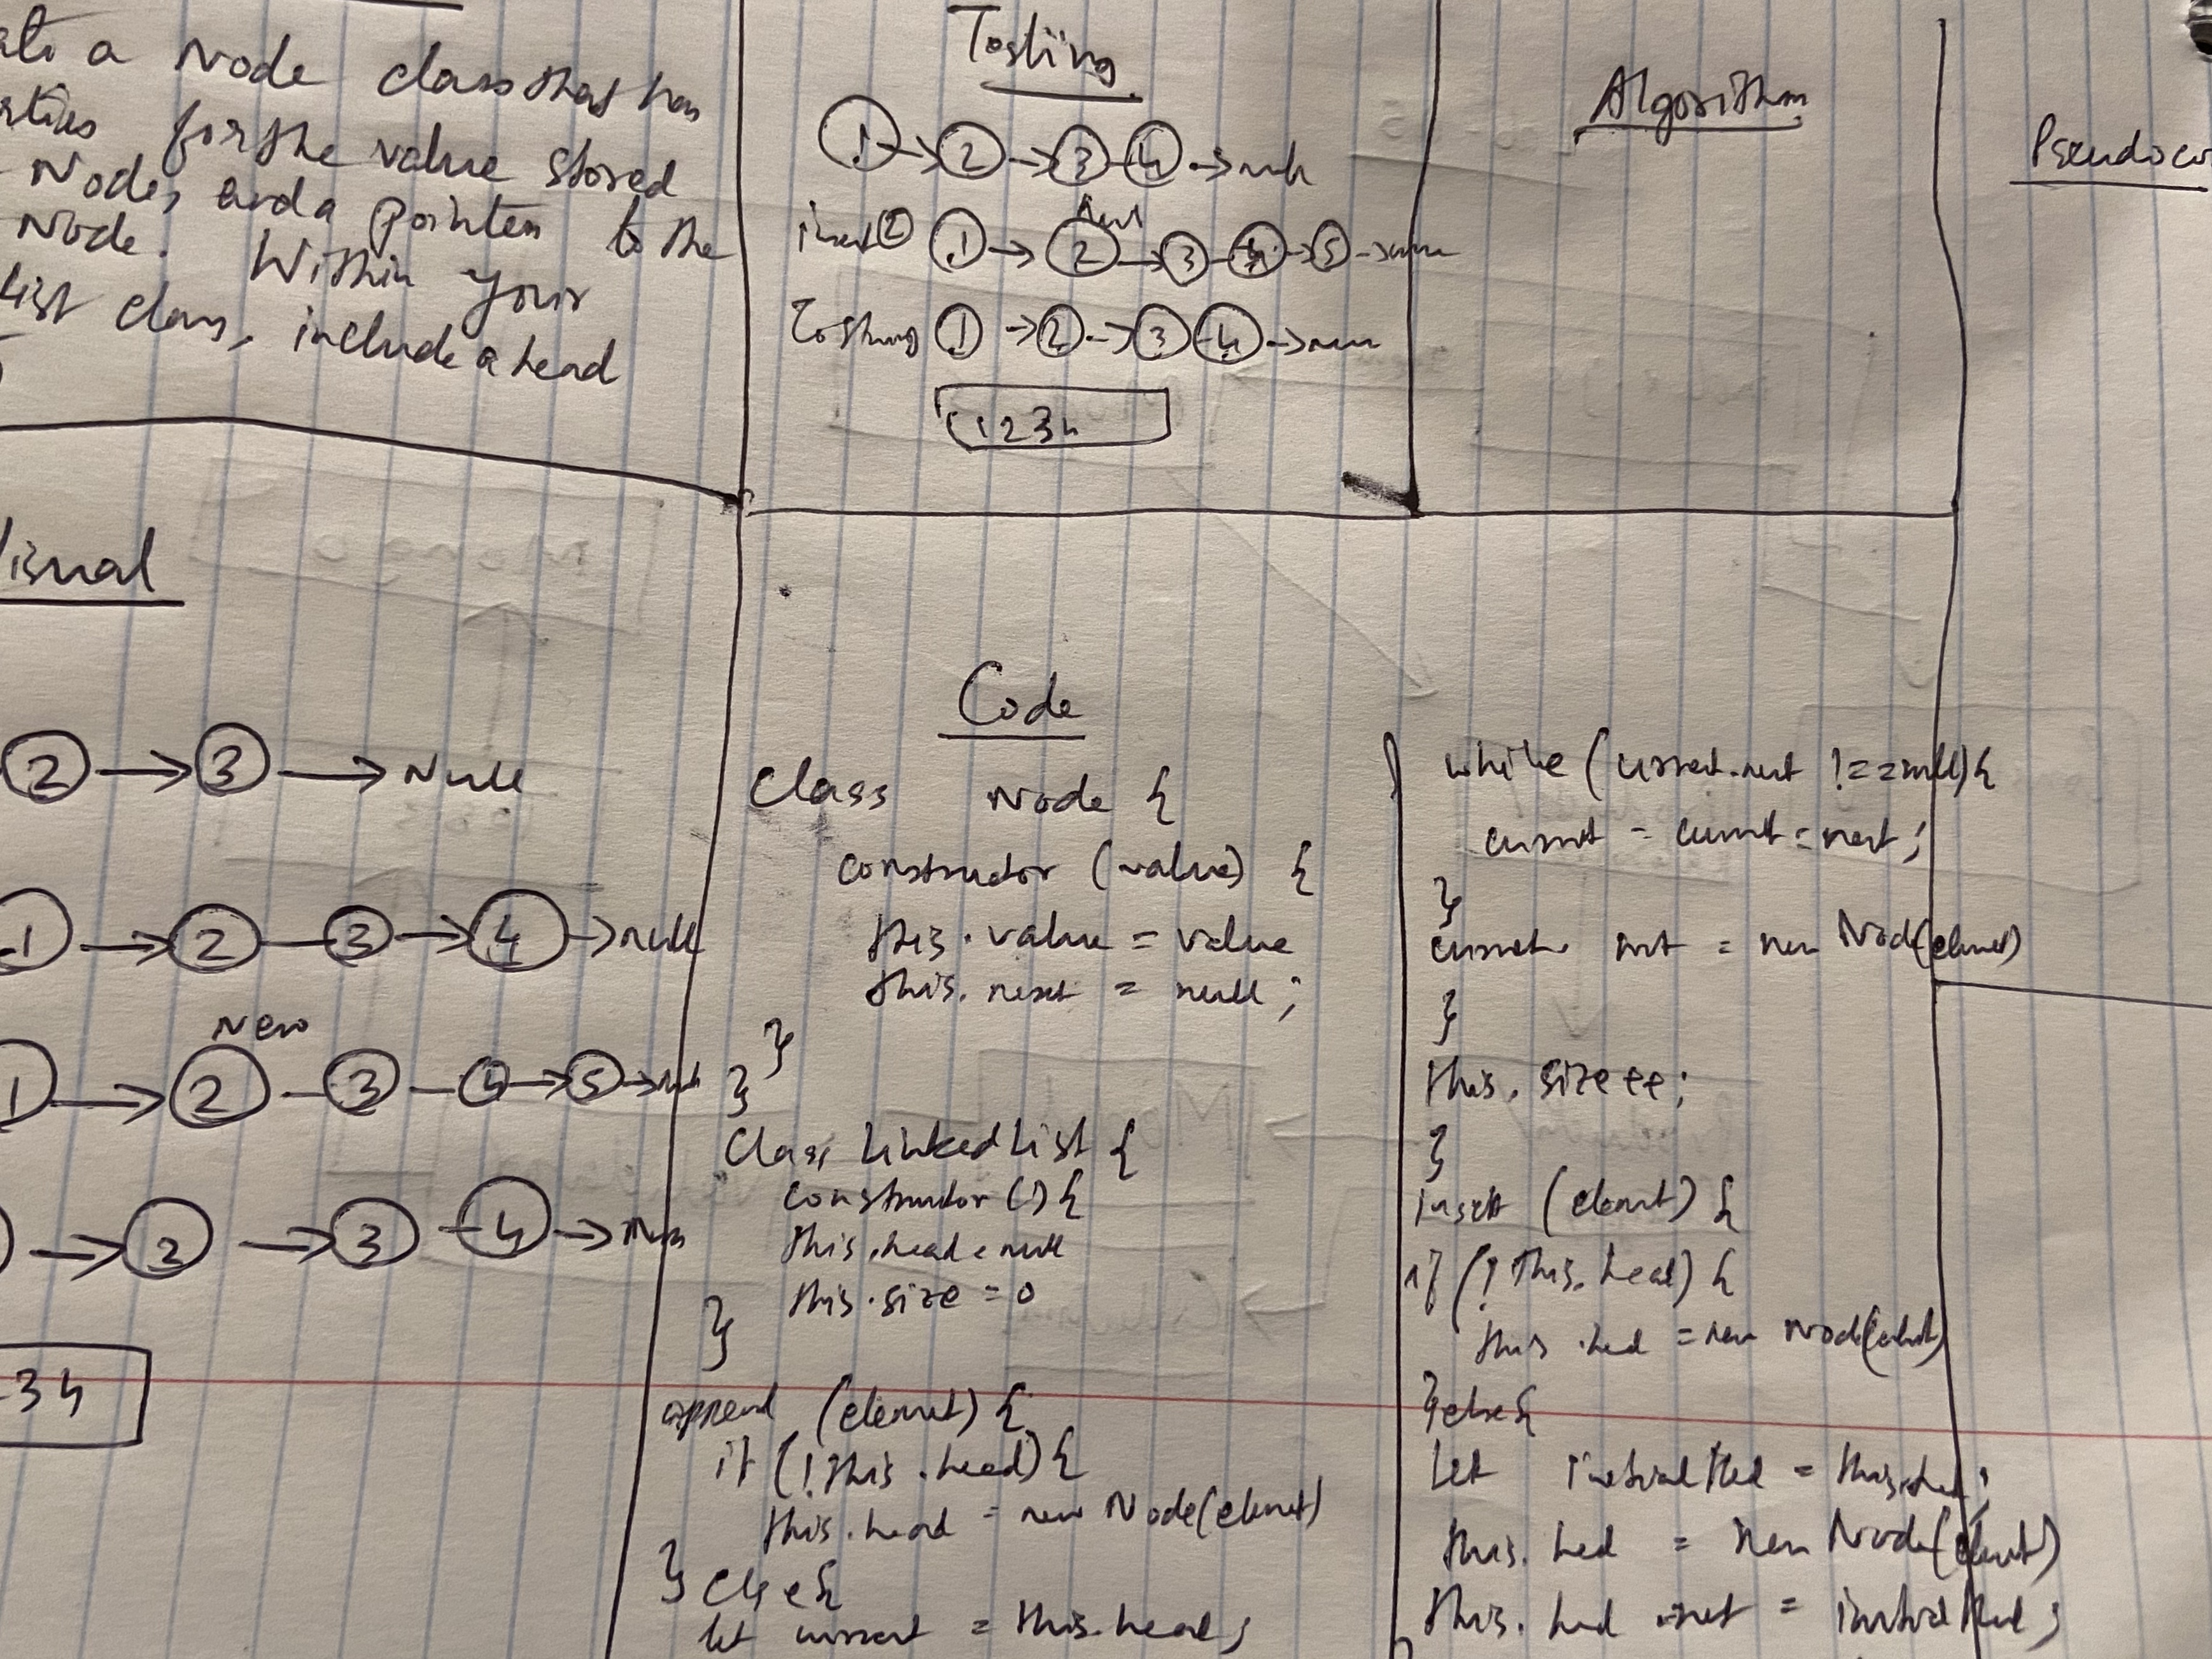 a Node class that has
for the value stored
Node, and a pointer to the
Node. Within your
list class, include a head
Testing
1 → 2 → 3 4 → null
insert 2 1 → 2 → 3 4 → 5 →
1 → 2 → 3 4 →
1 2 3 4
Algorithm
Visual
2 → 3 → Null
1 → 2 3 → 4 → null
New
1 → 2 3 4 → 5 →
→ 2 → 3 4 →
3 4
Code
Class Node {
constructor (value) {
this.value = value
this.next = null;
}
}
Class Linked List {
constructor () {
this.head = null
this.size = 0
}
append (element) {
if (!this.head) {
this.head = new Node(element)
} else {
let current = this.head;
while (current.next !== null) {
current = current = next;
}
current. next = new Node(element)
}
this.size++;
}
insert (element) {
if (!this.head) {
this.head = new Node(element)
} else {
let initialHed = this.hed;
this.hed = new Node(element)
this.hed .next = initialHed;